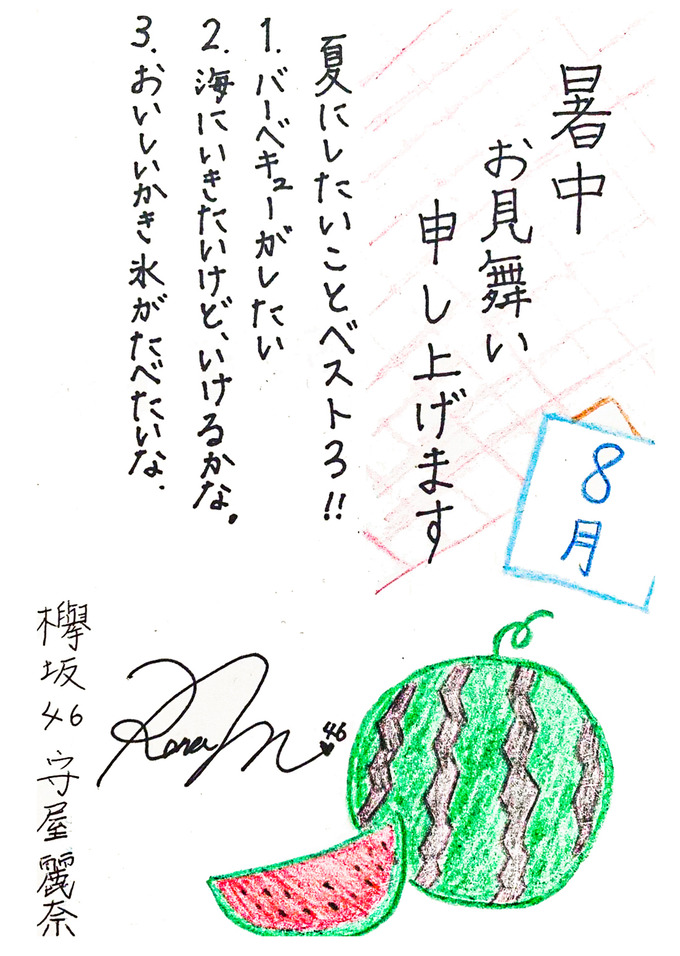 暑中
お見舞い
申し上げます
8月
夏にしたいことベスト3!!
1. バーベキューがしたい
2. 海にいきたいけど、いけるかな。
3. おいしいかき氷がたべたいな.
欅坂46 守屋麗奈
46